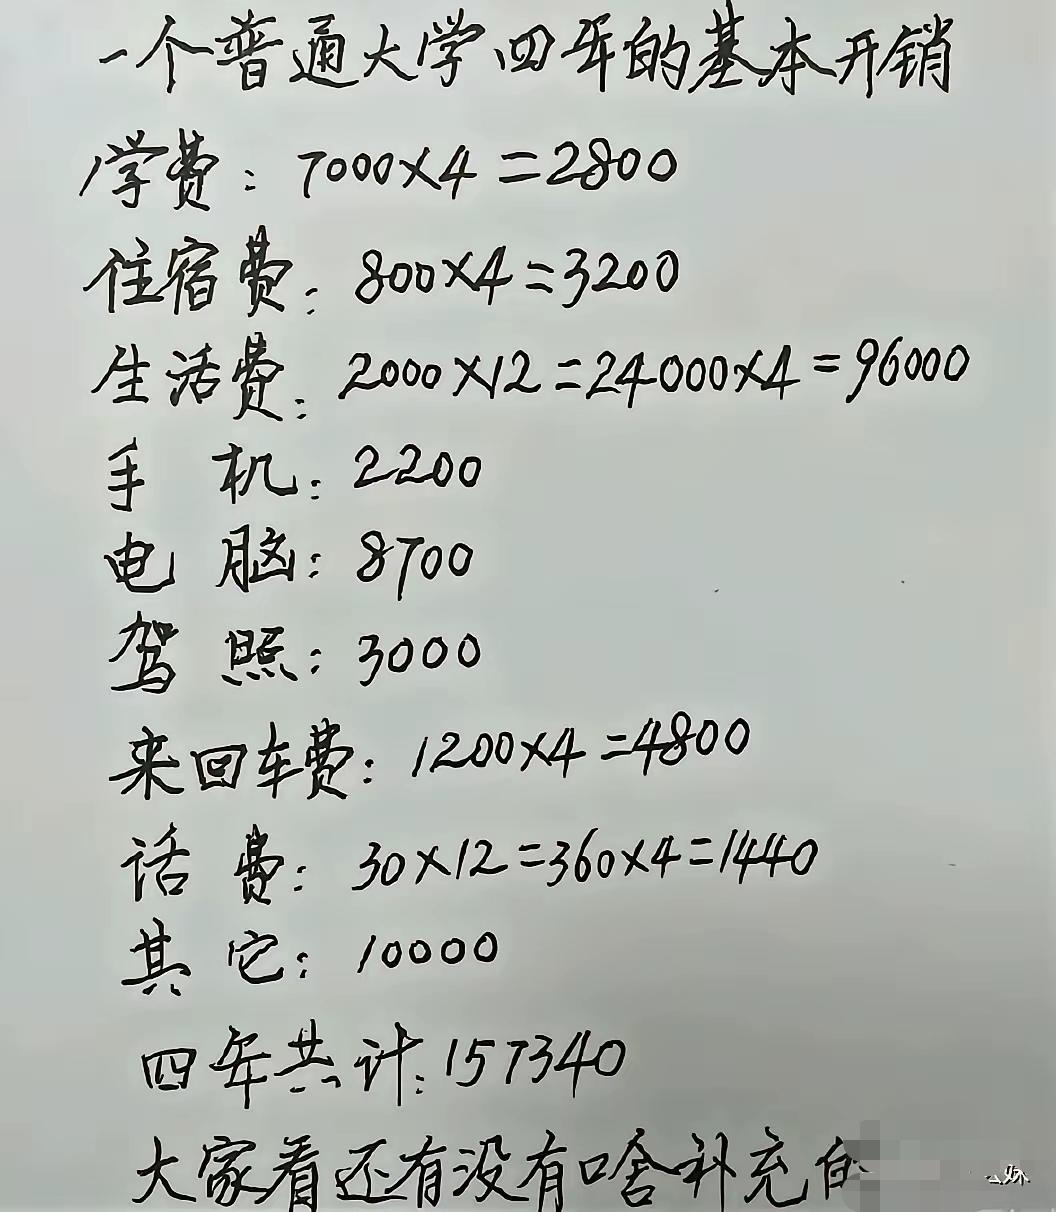 一个普通大学四年的基本开销
学费：7000×4=2800
住宿费：800×4=3200
生活费：2000×12=24000×4=96000
手机：2200
电脑：8700
驾照：3000
来回车费：1200×4=4800
话费：30×12=360×4=1440
其它：10000
四年共计：157340
大家看还有没有啥补充的